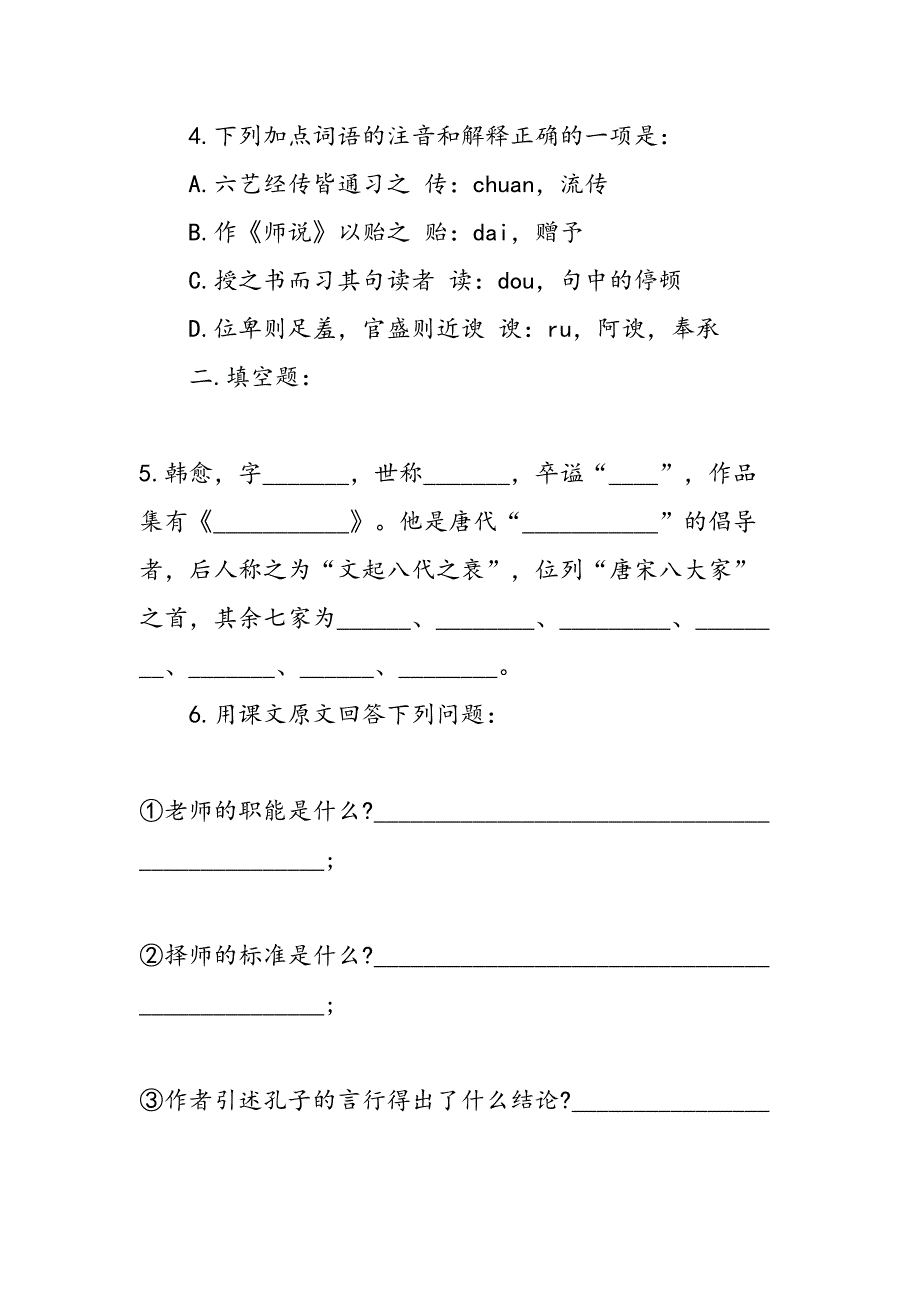 4.下列加点词语的注音和解释正确的一项是：
A.六艺经传皆通习之 传：chuan，流传
B.作《师说》以贻之 贻：dai，赠予
C.授之书而习其句读者 读：dou，句中的停顿
D.位卑则足羞，官盛则近谀 谀：ru，阿谀，奉承
二.填空题：
5.韩愈，字_______，世称_______，卒谥“____”，作品
集有《___________》。他是唐代“___________”的倡导
者，后人称之为“文起八代之衰”，位列“唐宋八大家”
之首，其余七家为______、________、_________、_______
__、_______、______、________。
6.用课文原文回答下列问题：
①老师的职能是什么?________________________________
_______________;
②择师的标准是什么?________________________________
_______________;
③作者引述孔子的言行得出了什么结论?________________